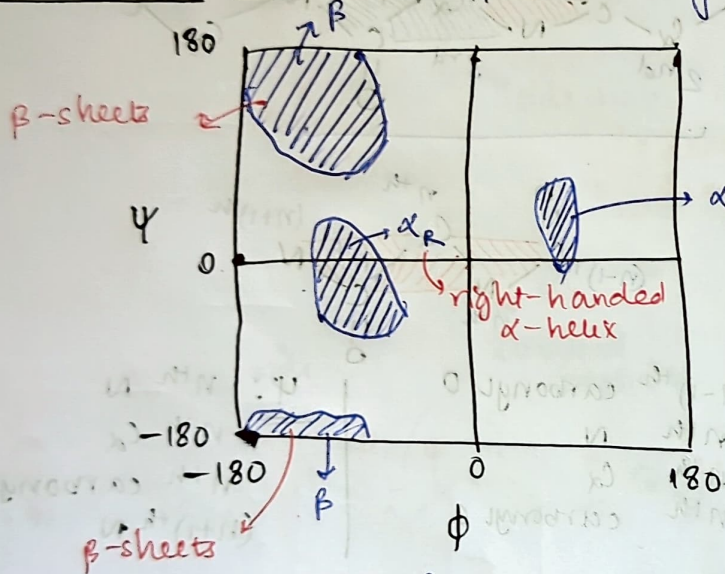 β
180
β-sheets
α
Ψ
α_R
0
right-handed
α-helix
-180
-180
0
180
β
ϕ
β-sheets